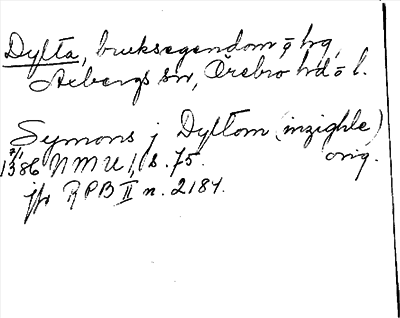 Dylta, bruksegendom o hg,
Axbergs sn, Örebro hd o l.
Symons j Dyltom (inzighle)
7/1 1386 NMU 1, s. 75. orig.
jfr RPB II n. 2184.